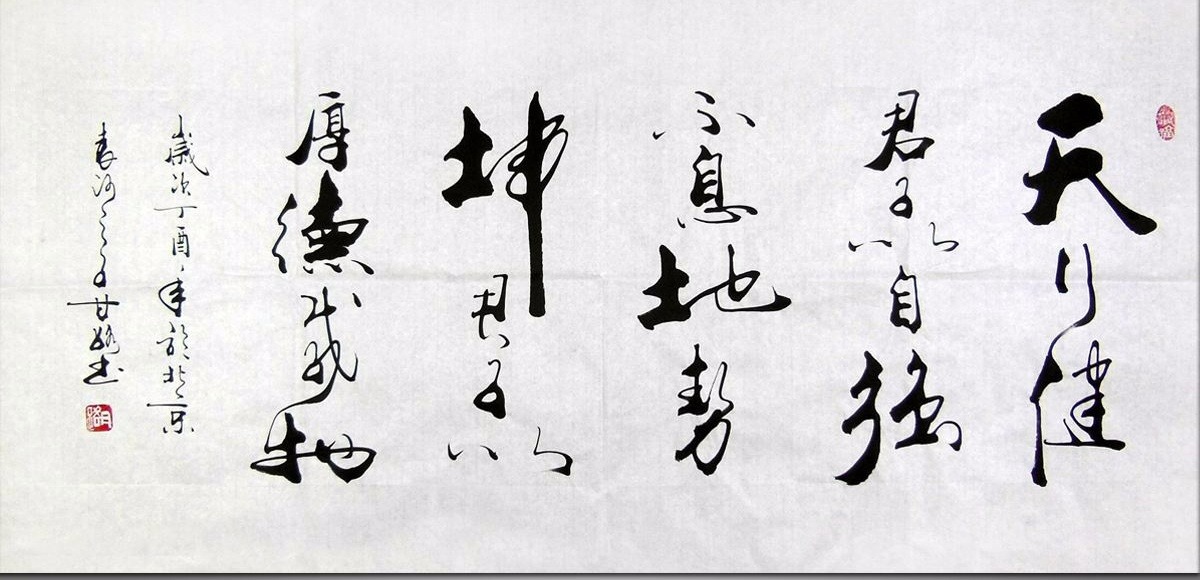 天行健
君子以自强
不息地势
坤君子以
厚德载物
岁次丁酉年于北京
书